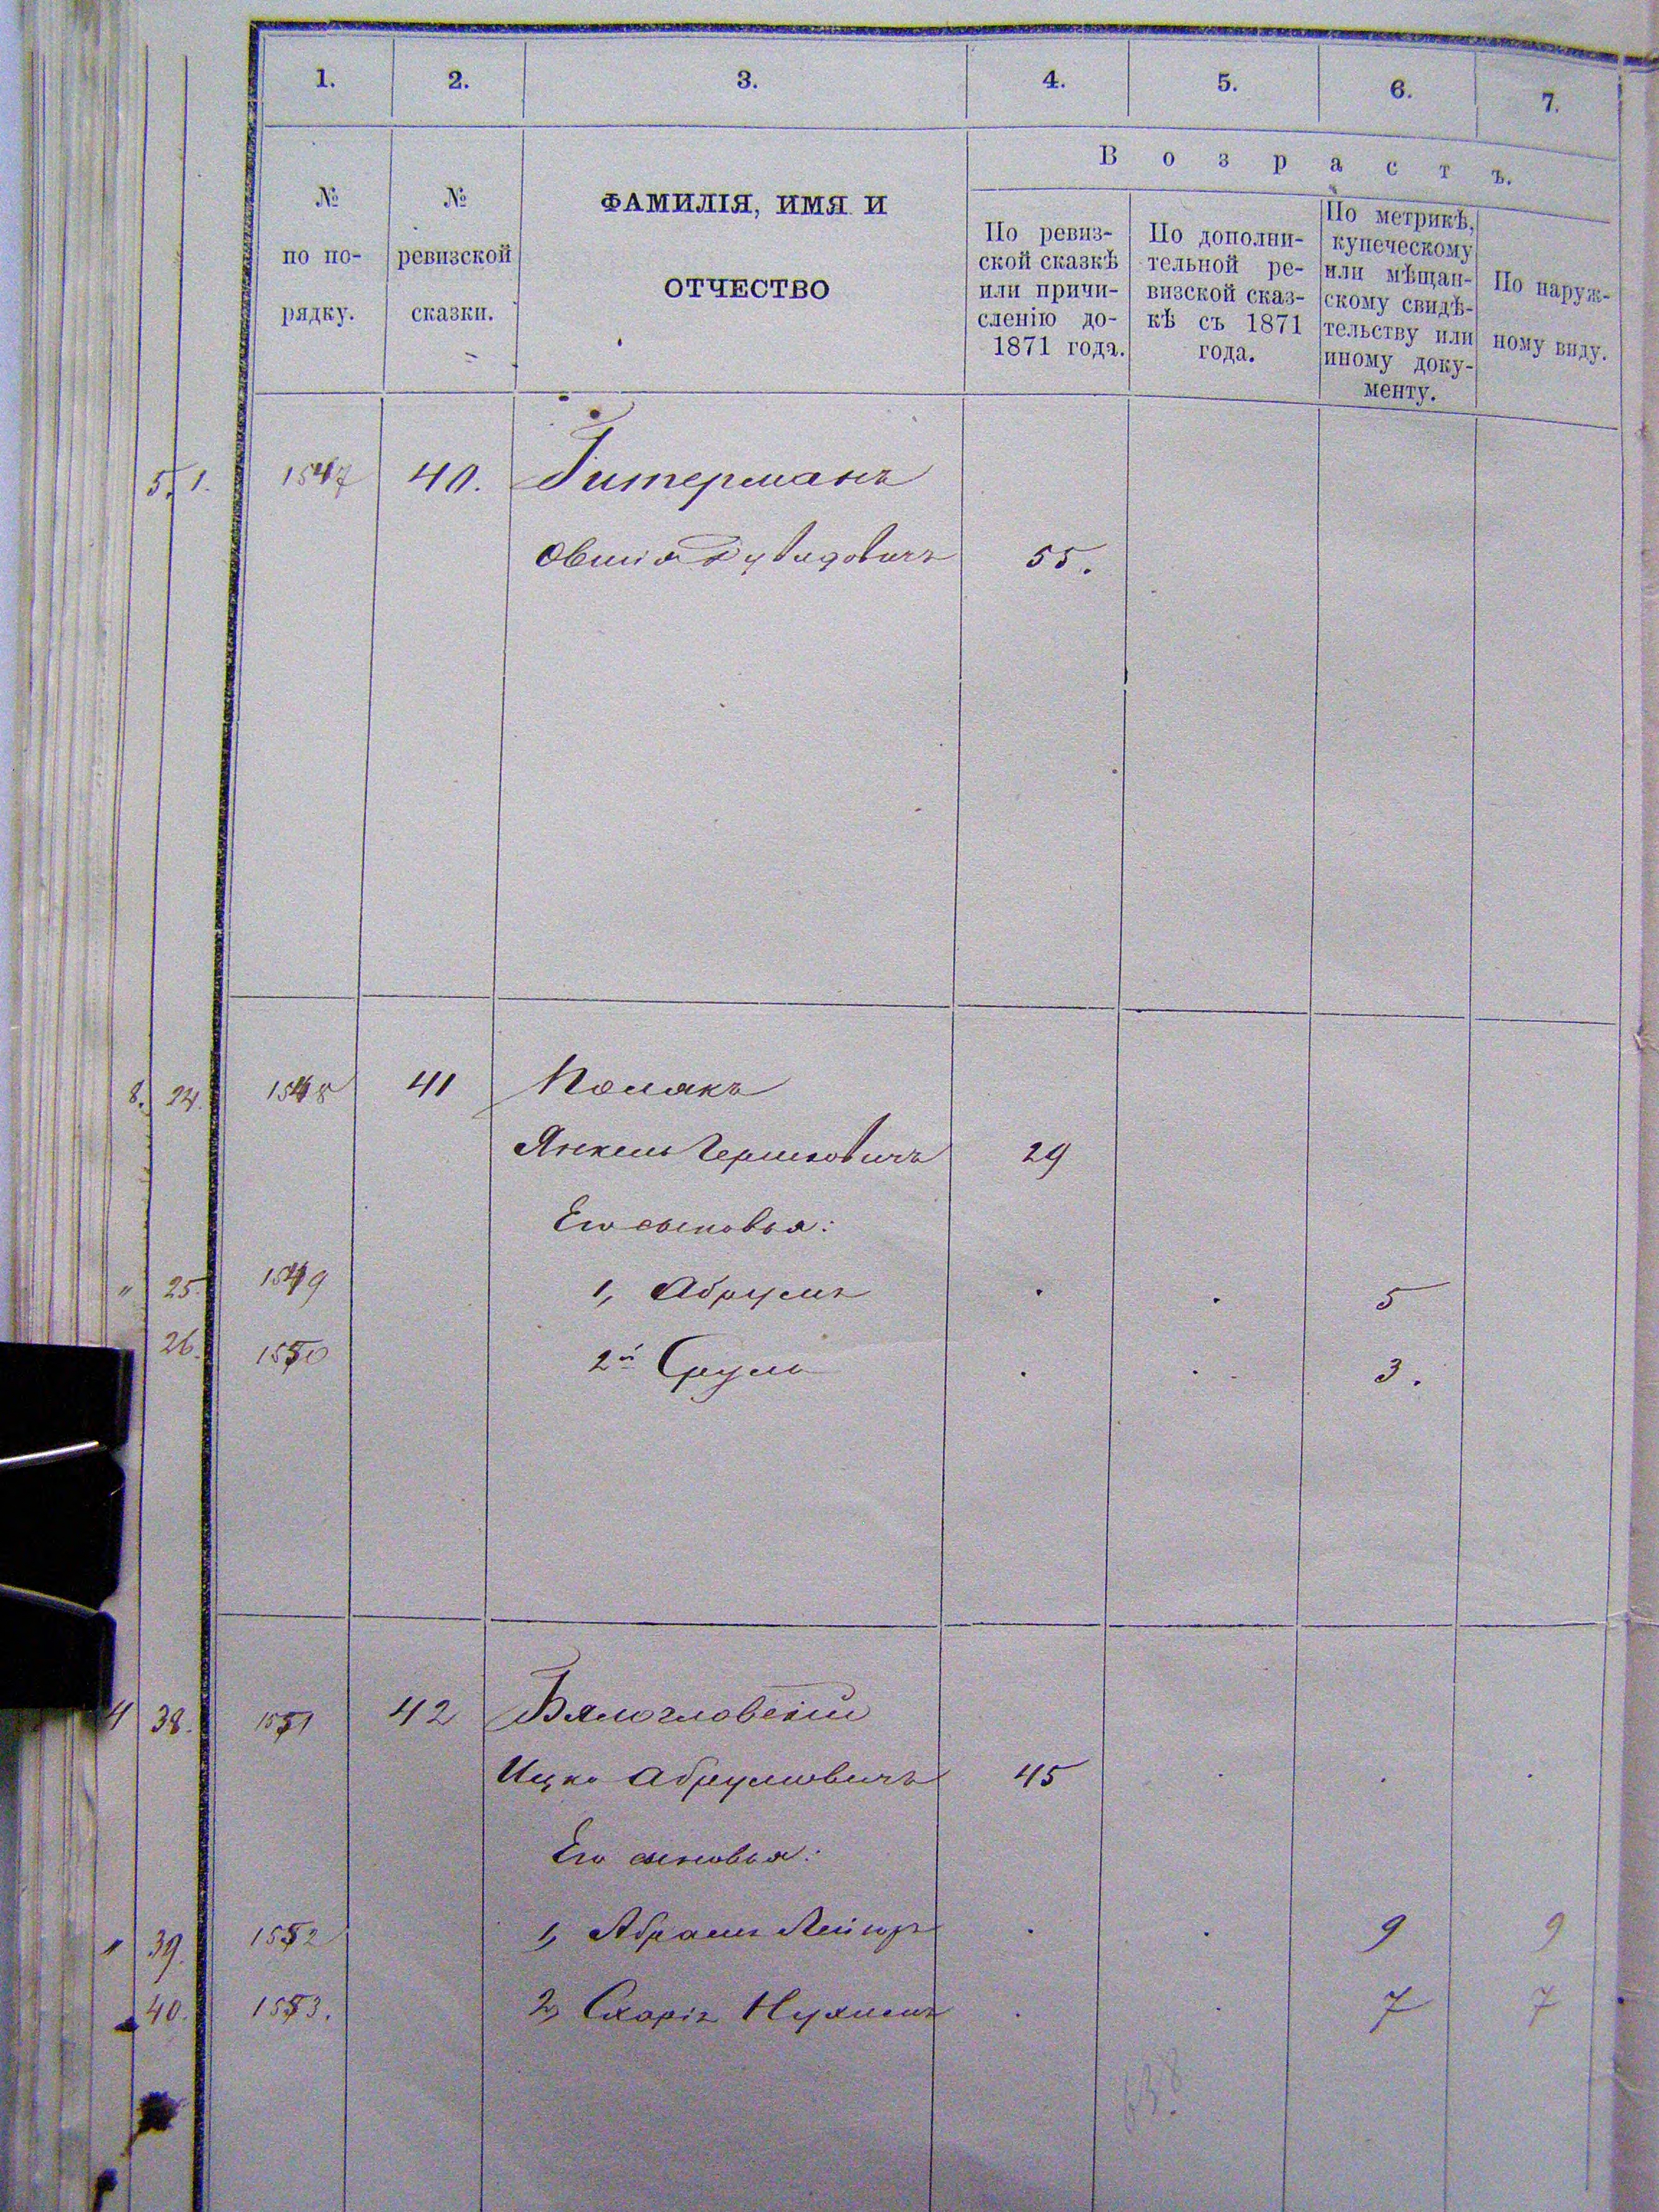 1. 2. 3. 4. 5. 6. 7.
№ по по-рядку.
№ ревизской сказки.
ФАМИЛІЯ, ИМЯ И
ОТЧЕСТВО
Возрастъ.
По ревиз-
ской сказкѣ
или причи-
сленію до-
1871 года.
По дополни-
тельной ре-
визской сказ-
кѣ съ 1871
года.
По метрикѣ,
купеческому
или мѣщан-
скому свидѣ-
тельству или
иному доку-
менту.
По наруж-
ному виду.
5. 1. 1547 40. Гитерманъ
Овшія Дувидовичъ 55.
8. 24. 1548 41 Полякъ
Янкель Гершковичъ 29
Его сыновья:
" 25. 1549 1, Абрумъ . . 5
26. 1550 2й Сруль . . 3.
4 38. 1551 42 Бялогловскій
Ицко Абрумовичъ 45 . . .
Его сыновья:
" 39. 1552 1, Абрамъ Лейзоръ . . 9 9
40. 1553. 2, Нухимъ . . 7 7
638